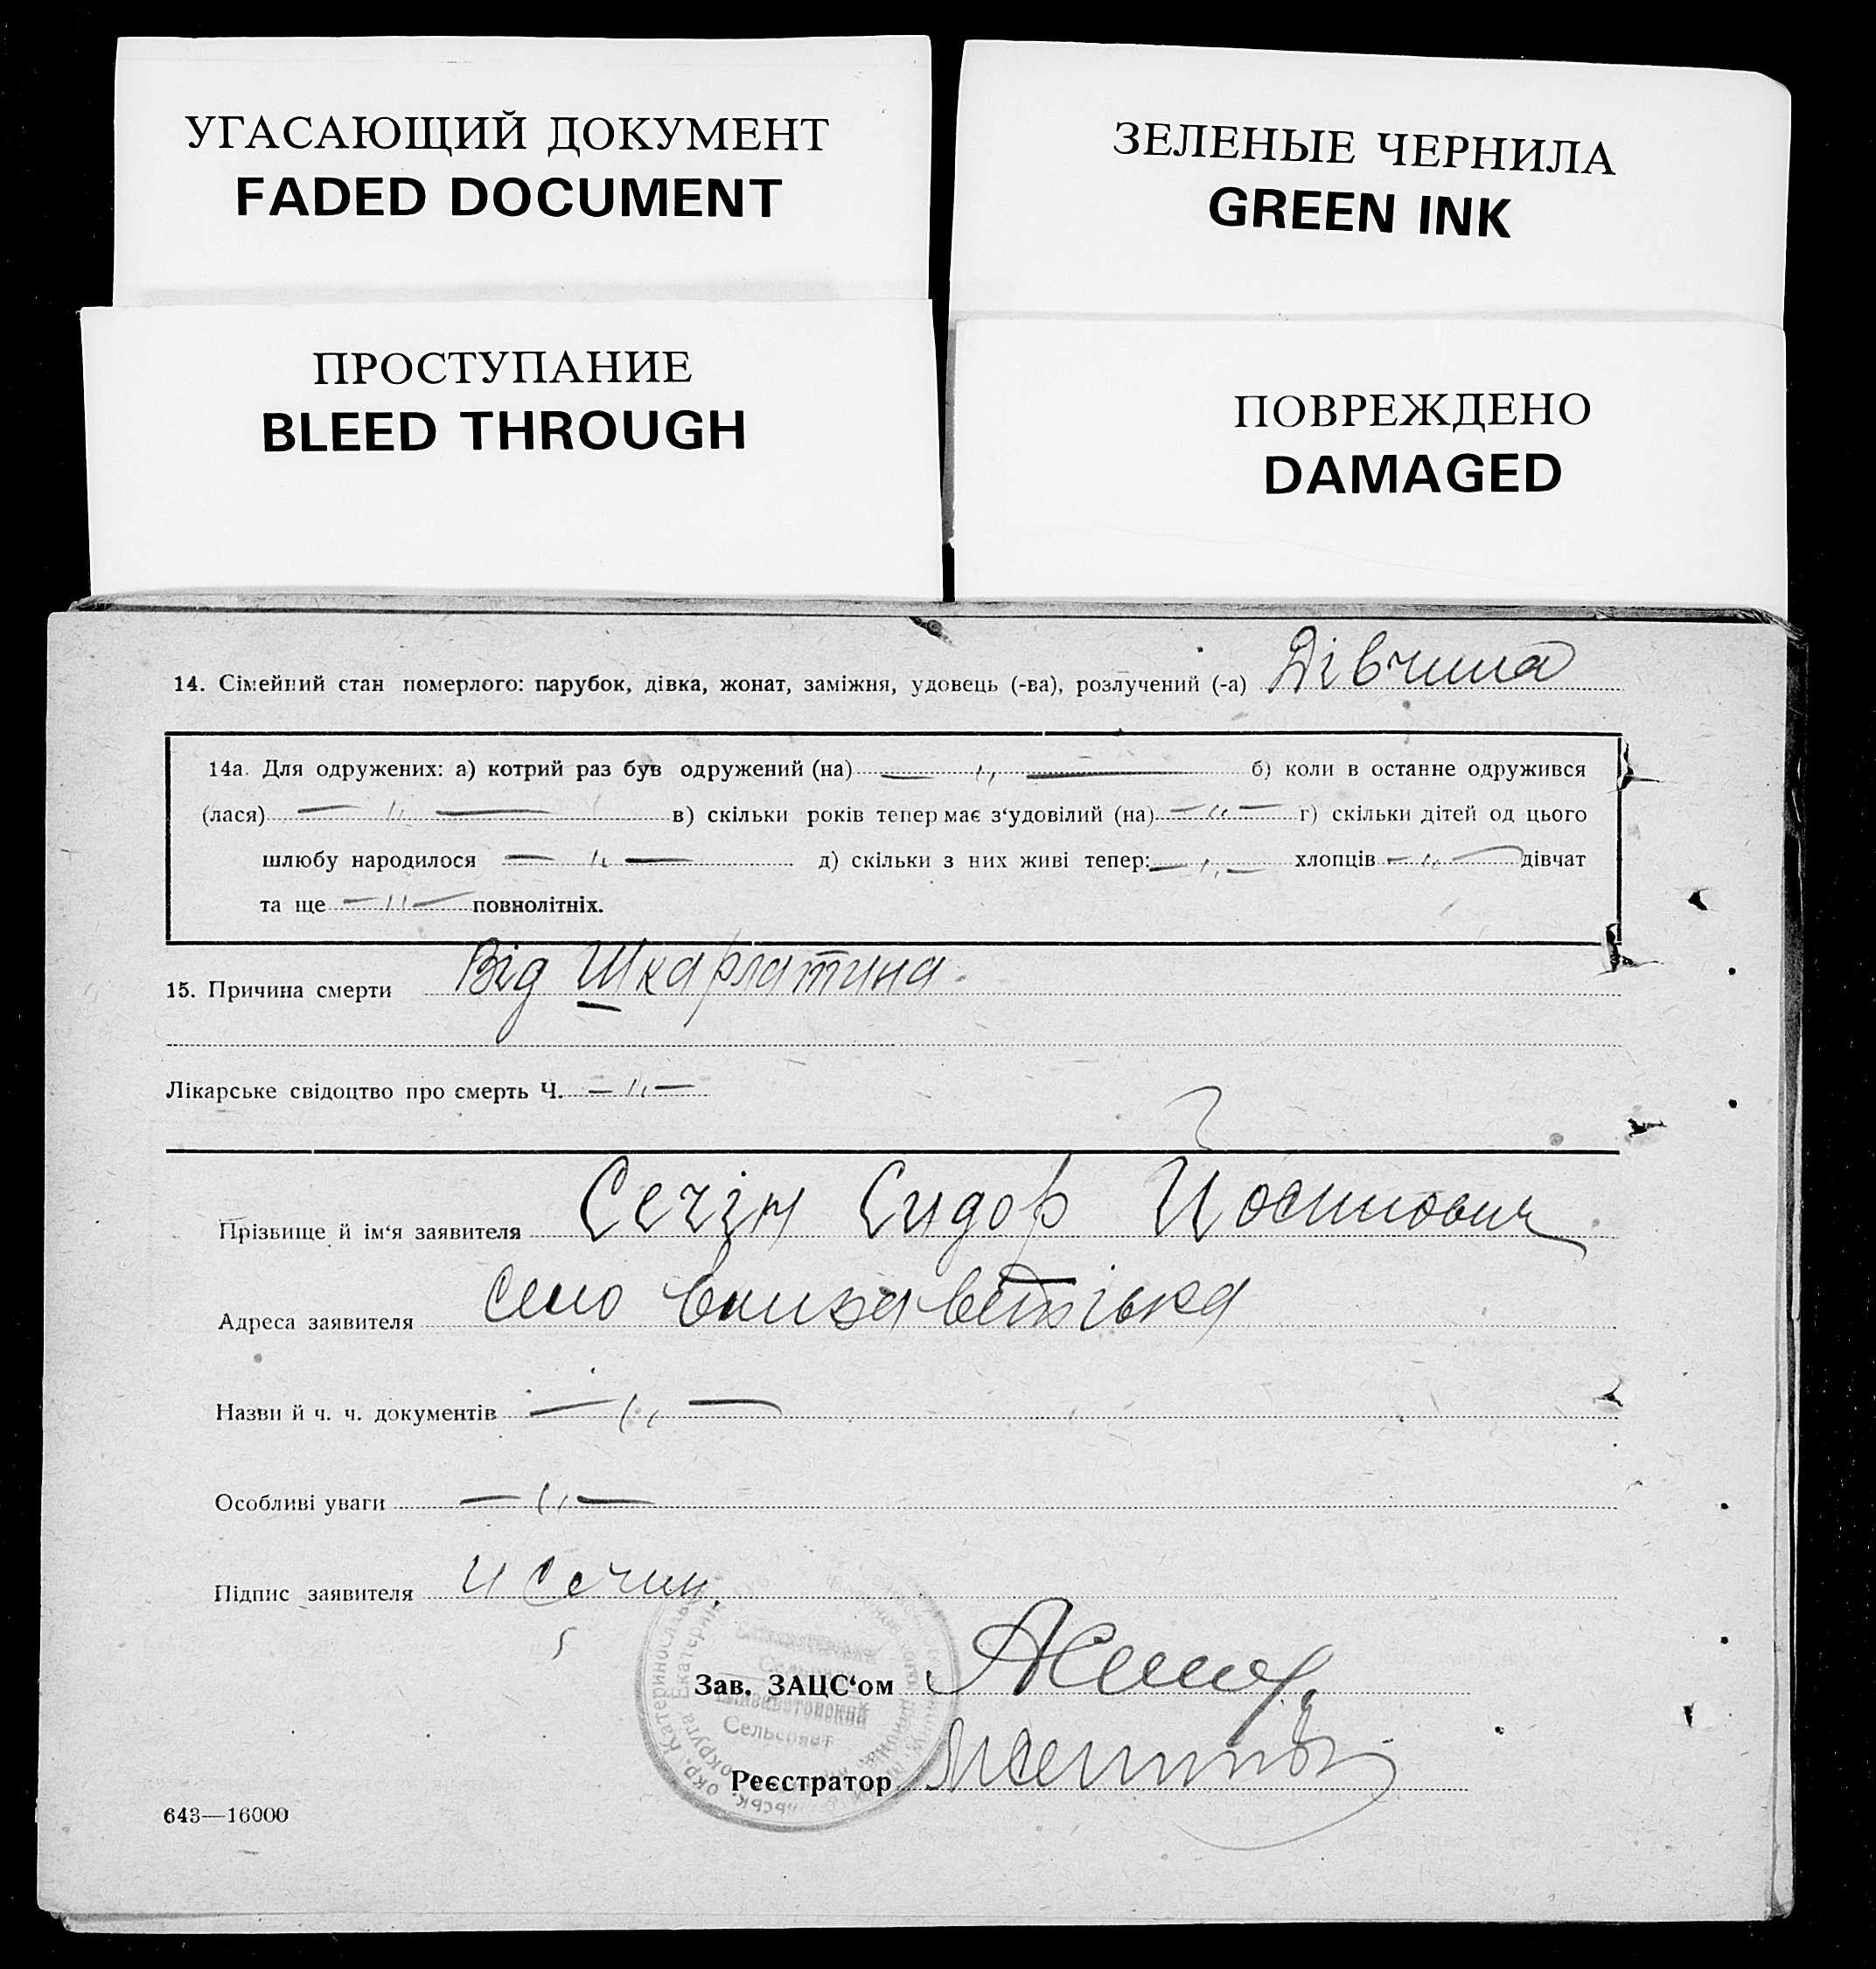 УГАСАЮЩИЙ ДОКУМЕНТ
FADED DOCUMENT
ЗЕЛЕНЫЕ ЧЕРНИЛА
GREEN INK
ПРОСТУПАНИЕ
BLEED THROUGH
ПОВРЕЖДЕНО
DAMAGED
14. Сімейний стан померлого: парубок, дівка, жонат, заміжня, удовець (-ва), розлучений (-а) Дівчина
14а. Для одружених: а) котрий раз був одружений (на) — ,, — б) коли в останнє одружився
(лася) — ,, — в) скільки років тепер має з‘удовілий (на) — ,, — г) скільки дітей од цього
шлюбу народилося — ,, — д) скільки з них живі тепер: — ,, — хлопців — ,, — дівчат
та ще — ,, — повнолітніх.
15. Причина смерти Від Шкарлатина.
Лікарське свідоцтво про смерть Ч. — ,, —
Прізвище й ім‘я заявителя Сечін Сидор Йосипович
Адреса заявителя село Єлизаветівка
Назви й ч. ч. документів — ,, —
Особливі уваги — ,, —
Підпис заявителя И Сечин.
Зав. ЗАЦС‘ом
Сельсовет
Реєстратор
643—16000